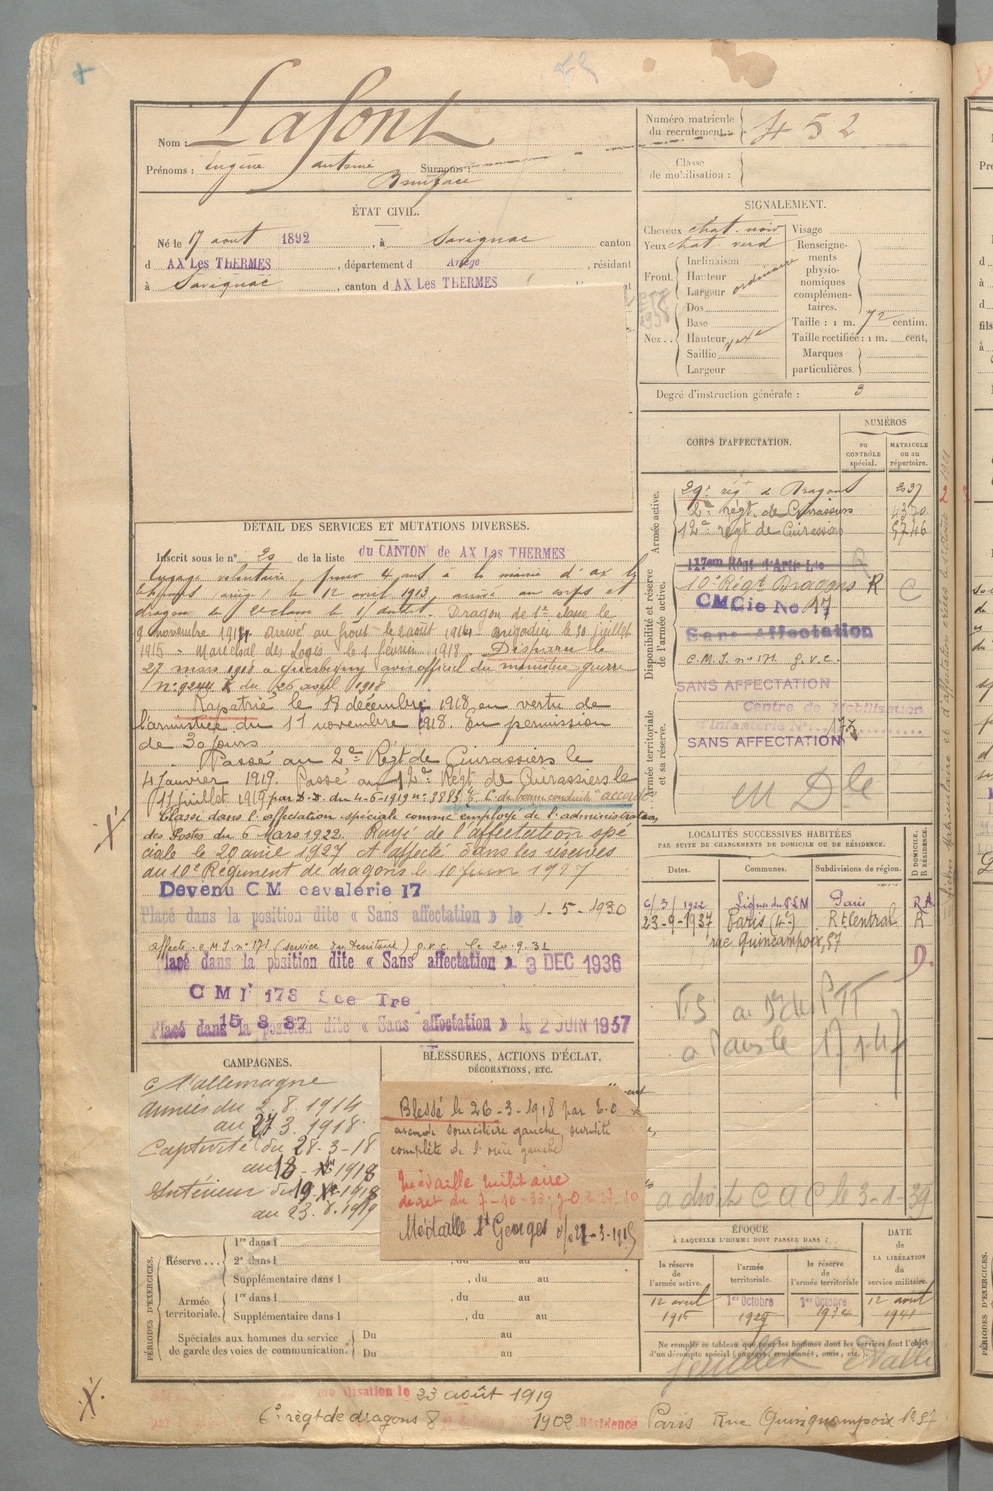 Lafont
Nom :
Prénoms : Eugène Antoine Surnoms :
Boniface
Numéro matricule du recrutement : 452
Classe de mobilisation :
ÉTAT CIVIL.
Né le 17 août 1892, à Savignac canton
d AX LES THERMES, département d Ariège, résidant
à Savignac, canton d AX LES THERMES
SIGNALEMENT.
Cheveux chat. noir
Yeux chat. verd
Front. Inclinaison
Hauteur ordinaire
Largeur
Nez.. Dos
Base
Hauteur
Saillie
Largeur
Visage
Renseignements physionomiques complémentaires.
Taille : 1 m. 72 centim.
Taille rectifiée : 1 m. cent.
Marques particulières.
Degré d'instruction générale : 3
DÉTAIL DES SERVICES ET MUTATIONS DIVERSES.
Inscrit sous le n° 20 de la liste du CANTON de AX Les THERMES
Engagé volontaire, pour 4 ans à la mairie d'ax les
thermes (ariège) le 12 avril 1913, arrivé au corps et
dragon de 2e classe le dudit. Dragon de 1e classe le
9 novembre 1914 arrivé au front le 2 août 1914 Brigadier le 30 juillet
1915 - Maréchal des Logis le 1 février 1918. Disparu le
27 mars 1918 à avis officiel du ministère guerre
n° 9244 K du 26 avril 1918
Rapatrié le 17 décembre 1918 en vertu de
l'armistice du 11 novembre 1918. En permission
de 30 jours
Passé au 2e Régt de Cuirassiers le
4 Janvier 1919. Passé au 12e Régt de Cuirassiers le
11 juillet 1919 par D.D. du 4-6-1919 n° 3885 C. de bonne conduite "accordé
Classé dans l'affectation spéciale comme employé de l'administration
des Postes du 6 Mars 1922. Rayé de l'affectation spé
ciale le 20 avril 1927 et affecté dans les réserves
au 10e Régiment de dragons le 10 juin 1927
Devenu CM cavalerie 17
Placé dans la position dite « Sans affectation » le 1-5-1930
affecté C.M.I. n° 171 (service du territoire) g.v.c. le 20.9.32
lacé dans la position dite « Sans affectation » 3 DEC 1936
CMI 173 Sce Tre
15 8 37
Placé dans la position dite « Sans affectation » le 2 JUIN 1937
CORPS D'AFFECTATION.
NUMÉROS
au CONTRÔLE spécial.
MATRICULE ou au répertoire.
Armée active.
29e régt d Dragons 237
2e régt. de Cuirassiers 4370
12e régt de Cuirassiers 5746
Disponibilité et réserve de l'armée active.
10e Régt Dragons R C
CMCie No 17
Sans Affectation
C.M.I. n° 171 g.v.c.
SANS AFFECTATION
Armée territoriale et sa réserve.
Centre de Mobilisation
d'Infanterie N° 173
SANS AFFECTATION
M Dle
LOCALITÉS SUCCESSIVES HABITÉES
PAR SUITE DE CHANGEMENTS DE DOMICILE OU DE RÉSIDENCE.
Dates. Communes. Subdivisions de région. D. DOMICILE. R. RÉSIDENCE.
6/3/1922 Ligne du PLM Paris RA
23-9-1937 Paris (4e) Rt Central R
rue Quincampoix, 57 D.
a droit C a C le 3-1-39
CAMPAGNES.
c/ l'allemagne
Années du 2.8.1914
au 27 3.1918.
Captivité du 28-3-18
au 18 - XII 1918
Intérieur du 19 XII-1918
au 23.8.1919
BLESSURES, ACTIONS D'ÉCLAT,
DÉCORATIONS, ETC.
Blessé le 26-3-1918 par E.O
arcade sourcilière gauche, surdité
complète de l'ouïe gauche
Médaille militaire
décret du 7-10-33
Médaille St Georges
PÉRIODES D'EXERCICES.
Réserve... 1re dans l
2e dans l , du au
Supplémentaire dans l , du au
Armée territoriale. 1re dans l , du au
Supplémentaire dans l , du au
Spéciales aux hommes du service
de garde des voies de communication. Du au
Du au
ÉPOQUE
À LAQUELLE L'HOMME DOIT PASSER DANS :
la réserve de l'armée active.
l'armée territoriale.
la réserve de l'armée territoriale
DATE de LA LIBÉRATION du service militaire.
12 avril 1916
1er Octobre
1er Octobre
12 avril 1941
Ne remplir ce tableau que pour les hommes dont les services font l'objet
d'un décompte spécial (engagés, condamnés, omis, etc.).
23 août 1919
6e régt de dragons Résidence Paris Rue Quinquampoix